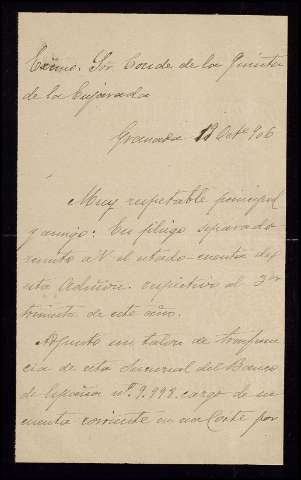 Exmo. Sor. Conde de la Quinta
de la Enjarada
Granada 19 Octe 906
Muy respetable principal
y amigo: En pliego separado
remito a V. el estado-cuenta de
esta Admon. respectivo al 3er
trimestre de este año.
Adjunto un talon de transferen
cia de esta Sucursal del Banco
de España nº. 9.998. cargo de mi
cuenta corriente en esa Corte por